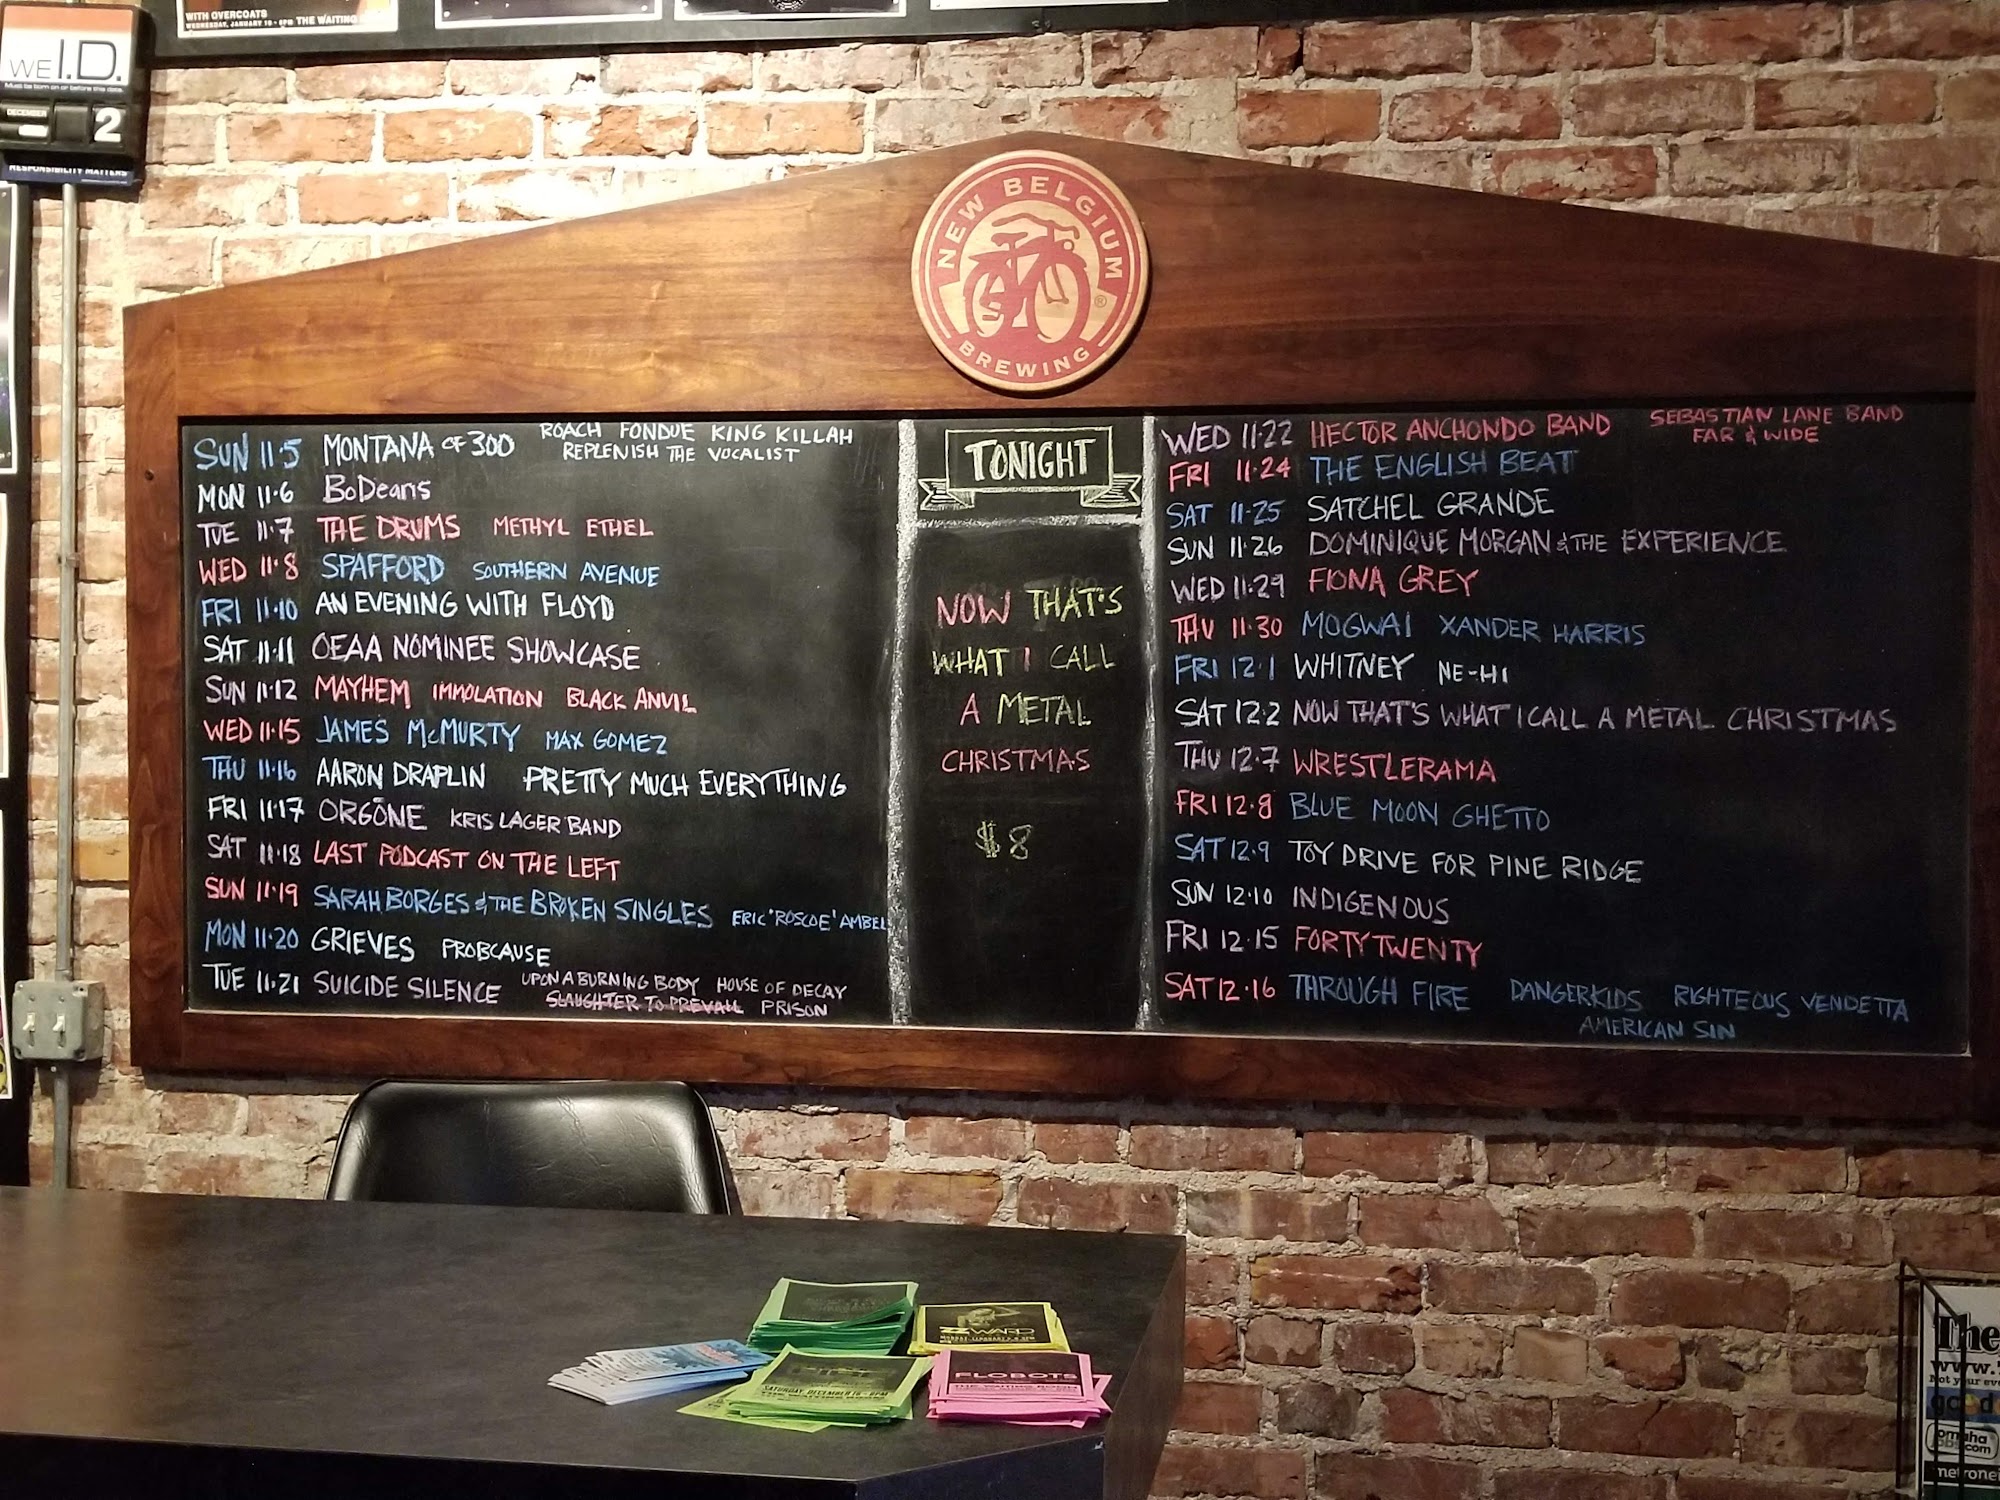 WITH OVERCOATS
WEDNESDAY, JANUARY 10 • 8PM THE WAITING
WE I.D.
Must be born on or before this date.
DECEMBER
2
RESPONSIBILITY MATTERS
NEW BELGIUM
BREWING
®
SUN 11·5 MONTANA OF 300 ROACH FONDUE KING KILLAH
REPLENISH THE VOCALIST
MON 11·6 BoDeans
TUE 11·7 THE DRUMS METHYL ETHEL
WED 11·8 SPAFFORD SOUTHERN AVENUE
FRI 11·10 AN EVENING WITH FLOYD
SAT 11·11 OEAA NOMINEE SHOWCASE
SUN 11·12 MAYHEM IMMOLATION BLACK ANVIL
WED 11·15 JAMES McMURTY MAX GOMEZ
THU 11·16 AARON DRAPLIN PRETTY MUCH EVERYTHING
FRI 11·17 ORGŌNE KRIS LAGER BAND
SAT 11·18 LAST PODCAST ON THE LEFT
SUN 11·19 SARAH BORGES & THE BROKEN SINGLES ERIC 'ROSCOE' AMBEL
MON 11·20 GRIEVES PROBCAUSE
TUE 11·21 SUICIDE SILENCE UPON A BURNING BODY HOUSE OF DECAY
SLAUGHTER TO PREVAIL PRISON
TONIGHT
NOW THAT'S
WHAT I CALL
A METAL
CHRISTMAS
$8
WED 11·22 HECTOR ANCHONDO BAND SEBASTIAN LANE BAND
FAR & WIDE
FRI 11·24 THE ENGLISH BEAT
SAT 11·25 SATCHEL GRANDE
SUN 11·26 DOMINIQUE MORGAN & THE EXPERIENCE
WED 11·29 FIONA GREY
THU 11·30 MOGWAI XANDER HARRIS
FRI 12·1 WHITNEY NE-HI
SAT 12·2 NOW THAT'S WHAT I CALL A METAL CHRISTMAS
THU 12·7 WRESTLERAMA
FRI 12·8 BLUE MOON GHETTO
SAT 12·9 TOY DRIVE FOR PINE RIDGE
SUN 12·10 INDIGENOUS
FRI 12·15 FORTYTWENTY
SAT 12·16 THROUGH FIRE DANGERKIDS RIGHTEOUS VENDETTA
AMERICAN SIN
ZZ WARD
SATURDAY, DECEMBER 16 • 8PM
FLOBOTS
THE WAITING ROOM
The
www.
Not your eve
omaha
jobs.com
metronei